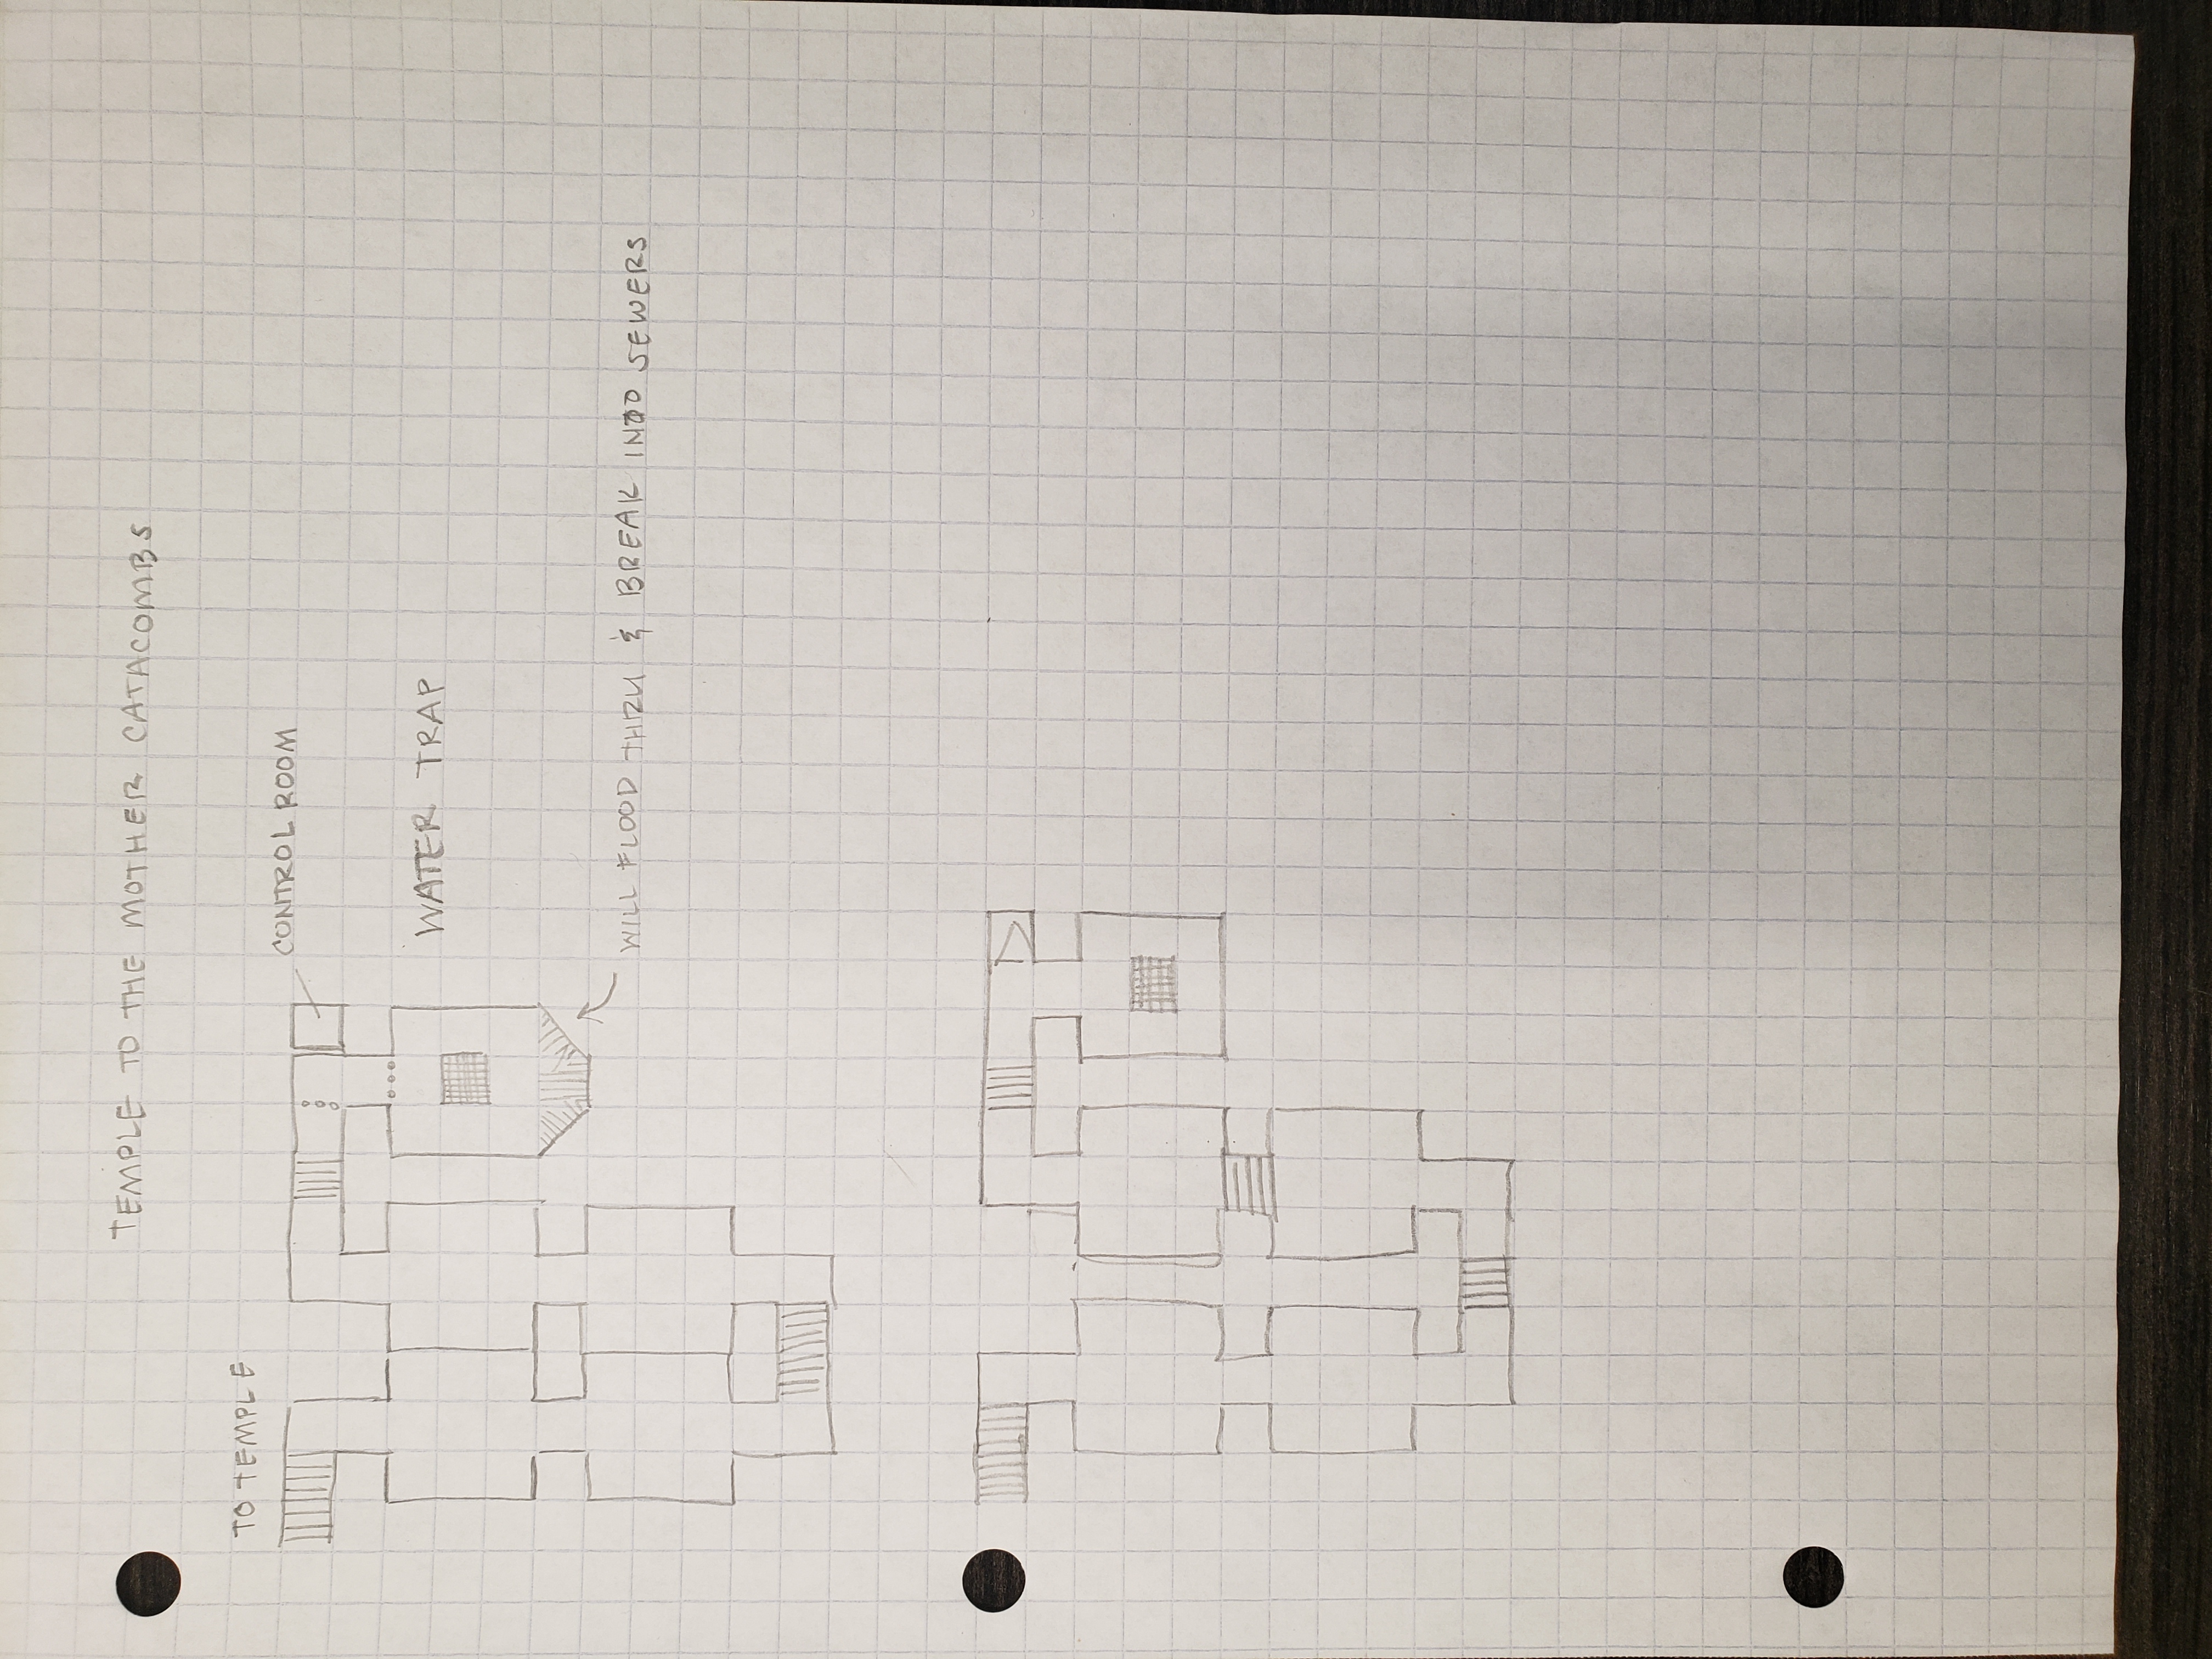 TEMPLE TO THE MOTHER CATACOMBS
TO TEMPLE
CONTROL ROOM
WATER TRAP
WILL FLOOD THRU & BREAK INTO SEWERS